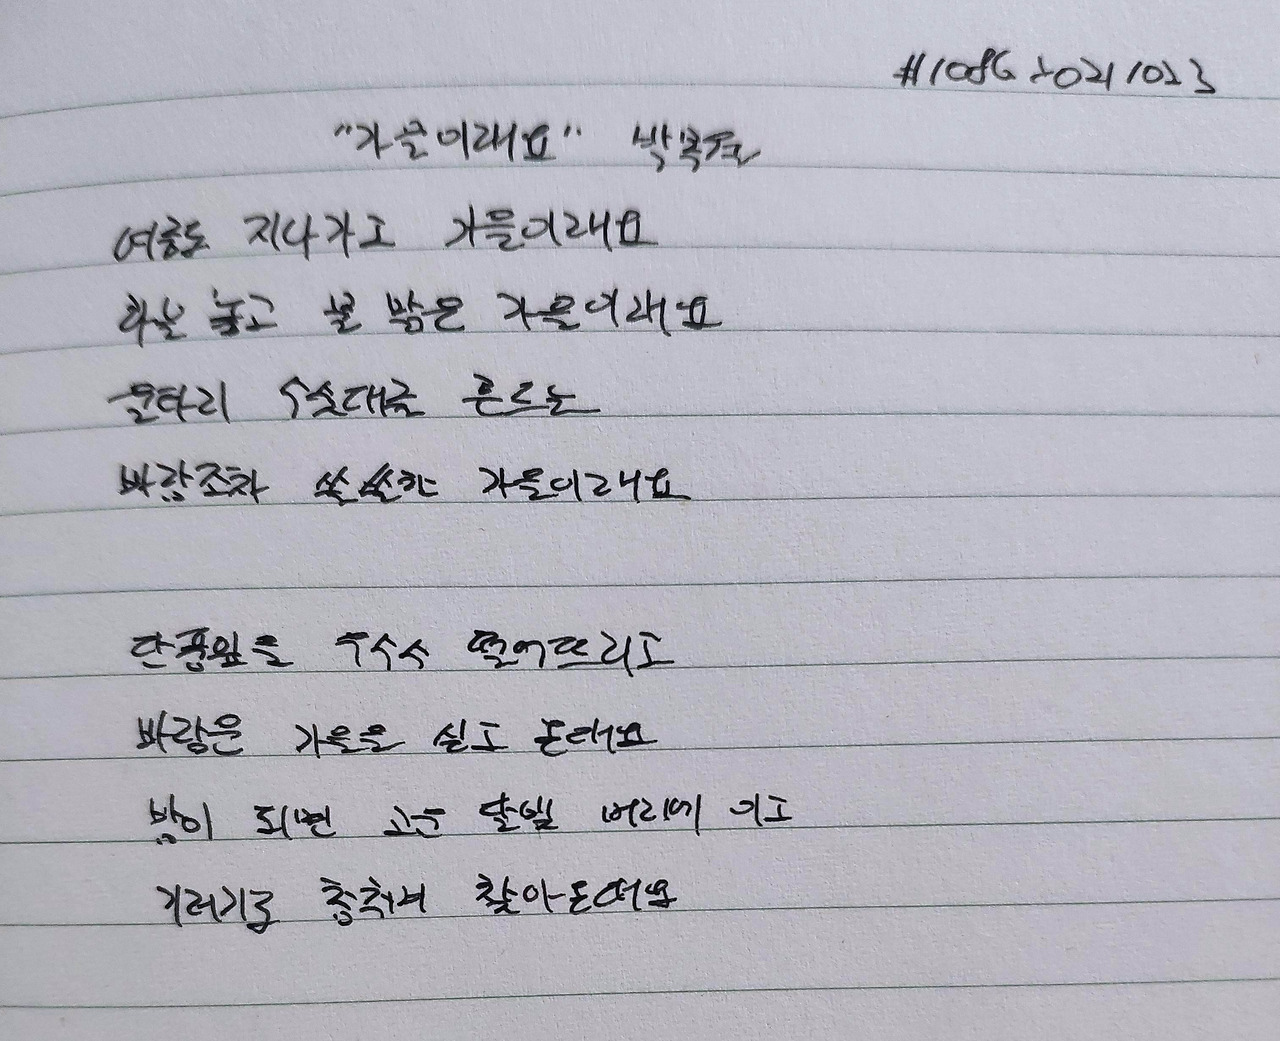 #1086 20211023
"가을이래요" 박목월
여름도 지나가고 가을이래요
하늘 높고 물 맑은 가을이래요
울타리 수숫대를 흔드는
바람조차 쓸쓸한 가을이래요
단풍잎을 우수수 떨어뜨리고
바람은 가을을 싣고 온대요
밤이 되면 고운 달빛 머리에 이고
기러기도 춤추며 찾아온대요